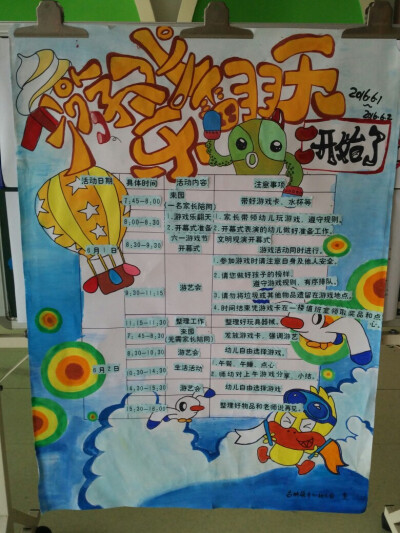 2016.6.1
~
2016.6.2
开始了
活动日期 具体时间 活动内容 注意事项
7:45-8:00 来园
一名家长陪同) 带好游戏卡、水杯等
1.游戏乐翻天 1.家长带领幼儿玩游戏，遵守规则。
2.开幕式准备 2.开幕式表演的幼儿做好准备工作。
6月1日 六一游戏节
开幕式 文明观演开幕式
游艺会 游戏活动同时进行，
1.参加游戏时请注意自身及他人安全。
2.请您做好孩子的榜样，
遵守游戏规则，有序排队。
3.请勿将垃圾或其他物品遗留在游戏地点。
4.时间结束凭游戏卡在一楼值班室领取奖品和点心。
整理工作 整理好玩具器械。
7:45-8:30 来园
无需家长陪同) 签就游戏卡、强调游艺
8:30-9:30 游艺会 幼儿自由选择游戏。
6月2日 生活活动 1.午餐、午睡、点心
2.活动对上午游戏分享、小结。
游艺会 幼儿自由选择游戏
15:30-16:00 整理好物品和老师说再见。